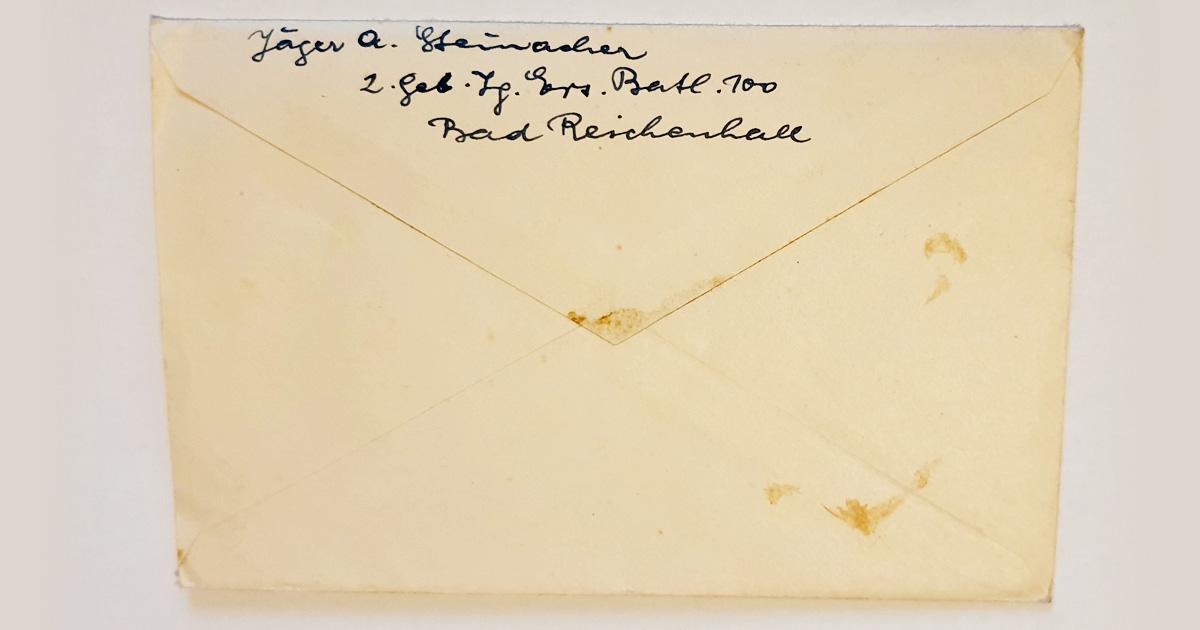 Jäger A. Steinacher
2. Geb. Jg. Ers. Batl. 100
Bad Reichenhall